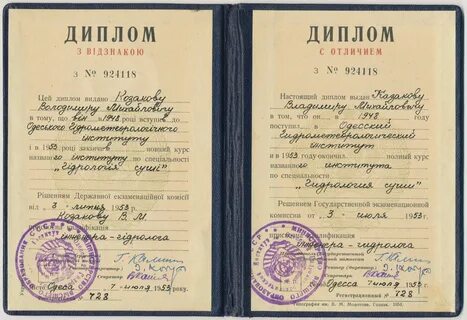 ДИПЛОМ
З ВІДЗНАКОЮ
З № 924118
Цей диплом видано Козакову
Володимиру Михайловичу
в тому, що він в 1948 році вступив до
Одеського Гідрометеорологічного
інституту
і в 1953 році закінчив повний курс
названого інституту
по спеціальності
"Гідрологія суші"
Рішенням Державної екзаменаційної комісії
від 3 липня 1953 р.
Козакову В. М.
кваліфікація
інженера-гідролога
Одеса 7 июля 1953
№ 728
ДИПЛОМ
С ОТЛИЧИЕМ
З № 924118
Настоящий диплом выдан Казакову
Владимиру Михайловичу
в том, что он в 1948 году
поступил в Одесский
Гидрометеорологический
институт
и в 1953 году окончил полный курс
названного института
по специальности
"Гидрология суши"
Решением Государственной экзаменационной
комиссии от 3 июля 1953 г.
квалификация
инженера-гидролога
Одесса 7 июля 1953
Регистрационный № 728